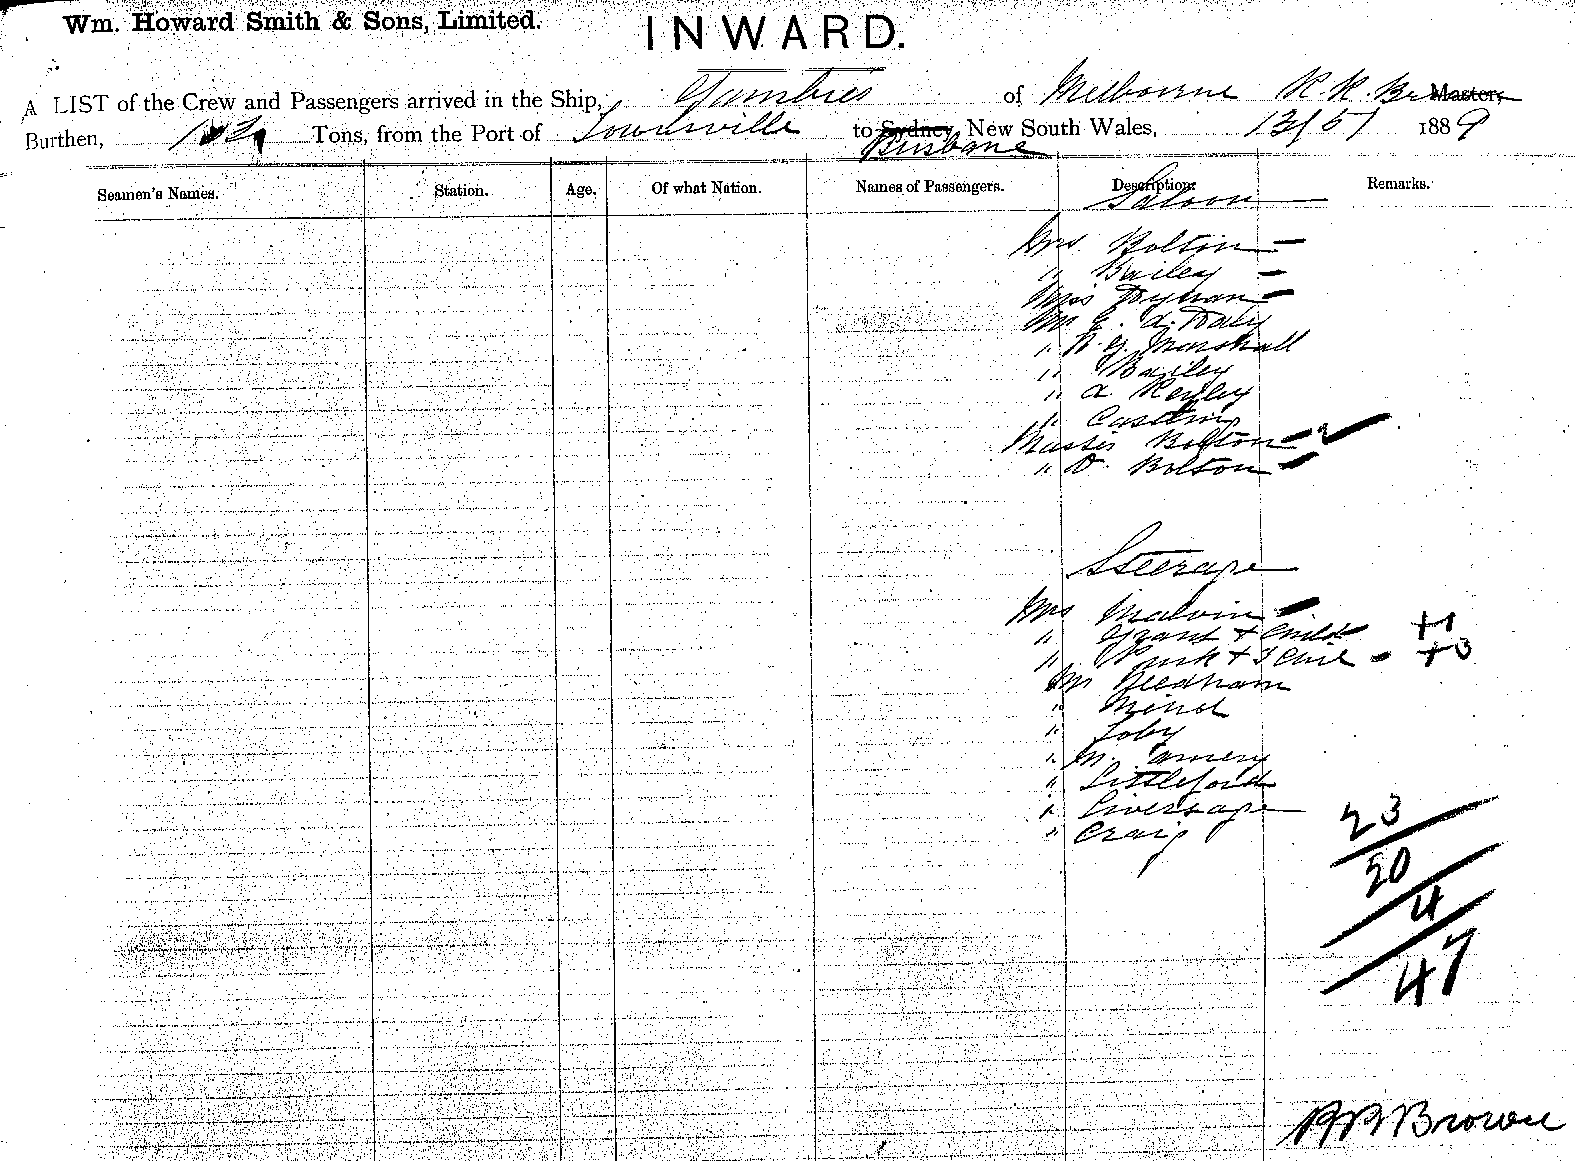 Wm. Howard Smith & Sons, Limited.
INWARD.
A LIST of the Crew and Passengers arrived in the Ship, Gambier of Melbourne R. R. Master,
Burthen, Tons, from the Port of Townsville to Sydney, New South Wales, 13/5/ 1889
Brisbane
Seamen's Names. Station. Age. Of what Nation. Names of Passengers. Description. Remarks.
Saloon
Mrs. Bolton
" Bailey
Miss
Mr Daly
" Marshall
" Bailey
" A
" Castling
Master Bolton
" D. Bolton
Steerage
Mrs Malvin
" Grant + Child +1
" + 3 +3
Mr Needham
"
" Toby
" M.
" Littleford
" Liversage
" Craig
23
20
4
47
Brown